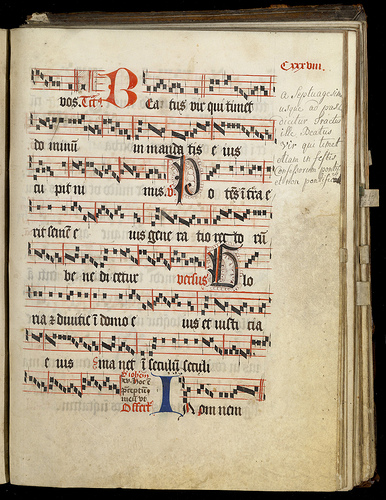 Cxxxviii.
vos. Tct9 Bea tus vir qui timet
do minū in manda tis e ius
cu pit ni mis. v. Po tēs ī tra e
rit semē e ius gene ra tio rec to rū
be ne di cetur versus Glo
ria z divitie ī domo e ius et iusti cia
e ius ma net ī seculū seculi
Offert I n om nem
A Septuagesim
usque ad pasc
dicitur Tractus
ille Beatus
Vir qui timet
etiam in festis
Confessorum pontif
et non pontific